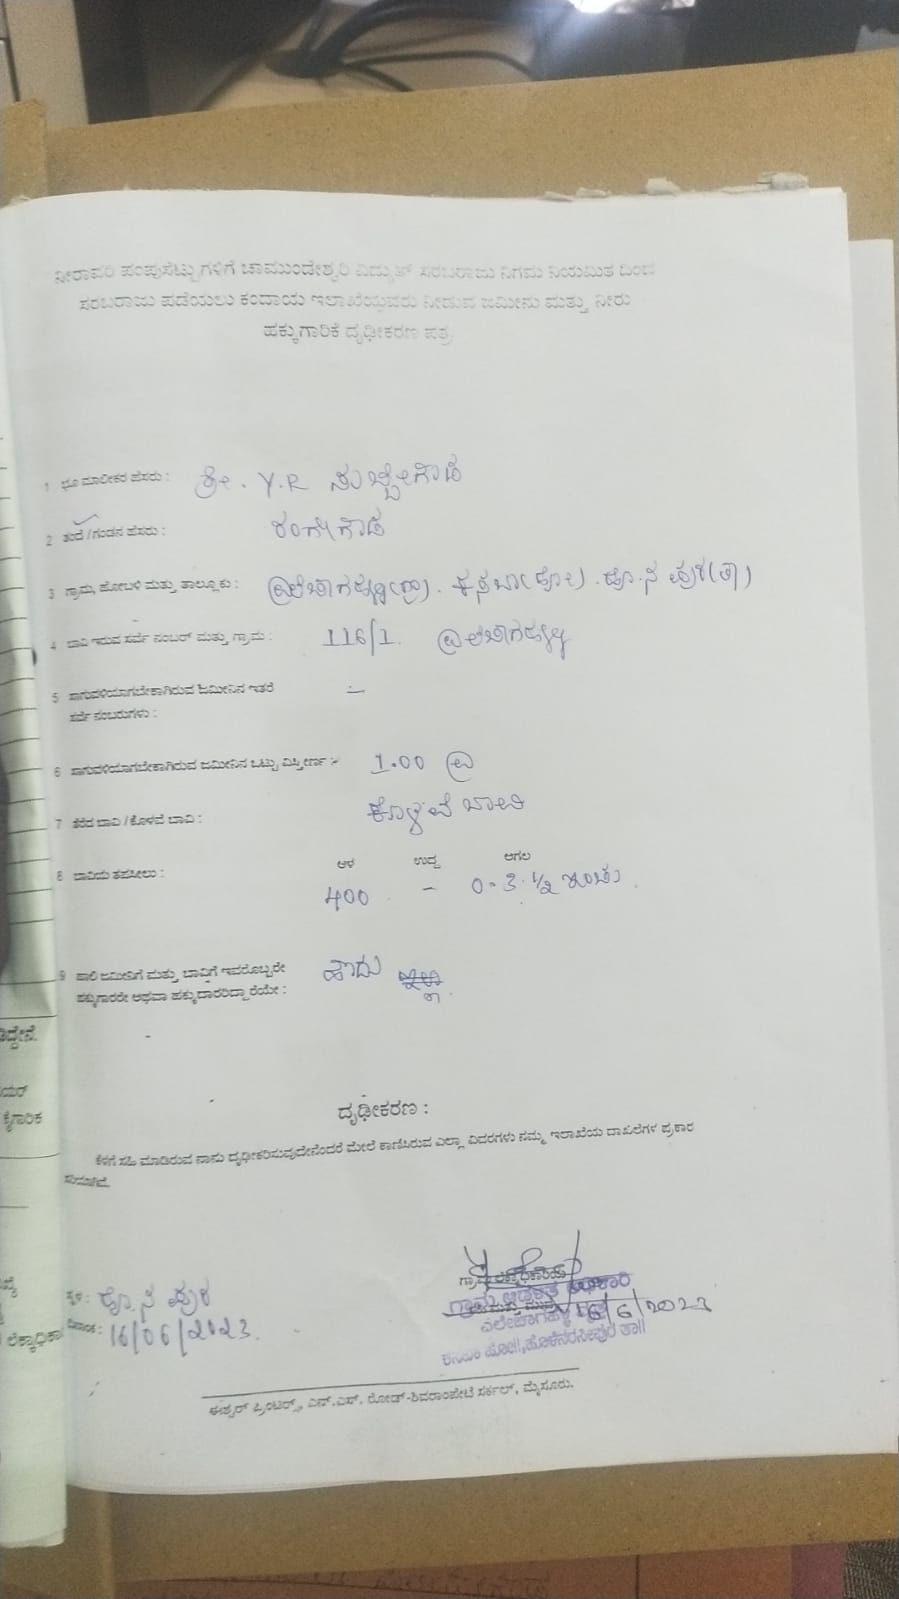 ನೀರಾವರಿ ಪಂಪುಸೆಟ್ಟುಗಳಿಗೆ ಚಾಮುಂಡೇಶ್ವರಿ ವಿದ್ಯುತ್ ಸರಬರಾಜು ನಿಗಮ ನಿಯಮಿತ ದಿಂದ
ಸರಬರಾಜು ಪಡೆಯಲು ಕಂದಾಯ ಇಲಾಖೆಯವರು ನೀಡುವ ಜಮೀನು ಮತ್ತು ನೀರು
ಹಕ್ಕುಗಾರಿಕೆ ದೃಢೀಕರಣ ಪತ್ರ
1 ಭೂ ಮಾಲೀಕರ ಹೆಸರು : ಶ್ರೀ. Y.R ಸುಬ್ಬೇಗೌಡ
2 ತಂದೆ / ಗಂಡನ ಹೆಸರು : ರಂಗೇಗೌಡ
3 ಗ್ರಾಮ, ಹೋಬಳಿ ಮತ್ತು ತಾಲ್ಲೂಕು : (ಗ್ರಾ). ಕಸಬಾ(ಹೋ). ಹೊ.ನ ಪುರ(ತಾ)
4 ಬಾವಿ ಇರುವ ಸರ್ವೆ ನಂಬರ್ ಮತ್ತು ಗ್ರಾಮ : 116/1.
5 ಸಾಗುವಳಿಯಾಗಬೇಕಾಗಿರುವ ಜಮೀನಿನ ಇತರೆ —
ಸರ್ವೆ ನಂಬರುಗಳು :
6 ಸಾಗುವಳಿಯಾಗಬೇಕಾಗಿರುವ ಜಮೀನಿನ ಒಟ್ಟು ವಿಸ್ತೀರ್ಣ :- 1.00 ಎ
7 ತೆರೆದ ಬಾವಿ / ಕೊಳವೆ ಬಾವಿ : ಕೊಳವೆ ಬಾವಿ
ಆಳ ಉದ್ದ ಅಗಲ
8 ಬಾವಿಯ ತಪಸೀಲು : 400 – 0-3 ½ ಇಂಚು.
9 ಹಾಲಿ ಜಮೀನಿಗೆ ಮತ್ತು ಬಾವಿಗೆ ಇವರೊಬ್ಬರೇ ಹೌದು
ಹಕ್ಕುಗಾರರೇ ಅಥವಾ ಹಕ್ಕುದಾರರಿದ್ದಾರೆಯೇ :
ದೃಢೀಕರಣ :
ಕೆಳಗೆ ಸಹಿ ಮಾಡಿರುವ ನಾನು ದೃಢೀಕರಿಸುವುದೇನೆಂದರೆ ಮೇಲೆ ಕಾಣಿಸಿರುವ ಎಲ್ಲಾ ವಿವರಗಳು ನಮ್ಮ ಇಲಾಖೆಯ ದಾಖಲೆಗಳ ಪ್ರಕಾರ
ಸರಿಯಾಗಿದೆ.
ಸ್ಥಳ : ಹೊ.ನ ಪುರ
ದಿನಾಂಕ : 16/06/2023.
ಗ್ರಾಮ ಲೆಕ್ಕಾಧಿಕಾರಿಯ
ಗ್ರಾಮ ಆಡಳಿತ ಅಧಿಕಾರಿ
16/6/2023
ಕಸಬಾ ಹೋ||, ಹೊಳೆನರಸೀಪುರ ತಾ||
ಈಶ್ವರ್ ಪ್ರಿಂಟರ್ಸ್, ಎನ್.ಎಸ್. ರೋಡ್-ಶಿವರಾಂಪೇಟೆ ಸರ್ಕಲ್, ಮೈಸೂರು.